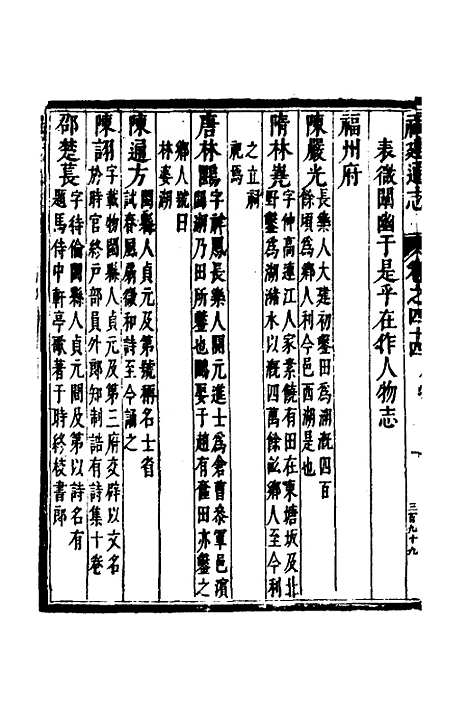 福建通志
卷之四十四
人物
一
三百九十九
表微闡幽于是乎在作人物志
福州府
陳嚴光 長樂人大建初鑿田為湖溉四百
餘頃為鄉人利今邑西湖是也
隋林嶤 字仲高連江人家業饒有田在東塘坂及北
野鑿為湖潴水以溉四萬餘畝鄉人至今利
之立祠
祀焉
唐林鶠 字祥鳳長樂人開元進士為倉曹叅軍邑濱
鶠湖乃田所鑿也鶠娶于趙有奩田亦鑿之
鄉人號曰
林婆湖
陳通方 閩縣人貞元及第號稱名士省
試春風扇微和詩至今誦之
陳詡 字載物閩縣人貞元及第三府交辟以文名
於時官終戶部員外郎知制誥有詩集十卷
邵楚萇 字待倫閩縣人貞元間及第以詩名有
題馬侍中軒亭歌著于時終校書郎